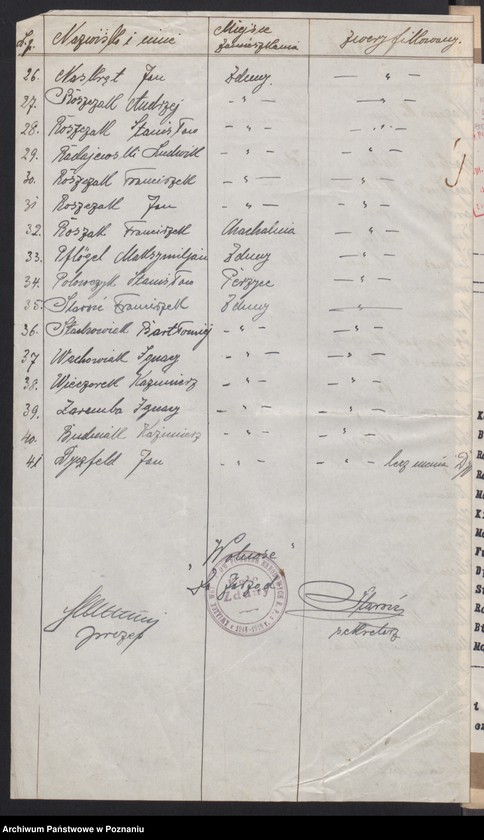 L.p. Nazwisko i imię Miejsce zamieszkania Zweryfikowany.
26. Naskręt Jan Zduny. — " —
27. Roszczak Andrzej - " - — " —
28. Roszczak Stanisław - " - — " —
29. Radajewski Ludwik - " - — " —
30. Roszczak Franciszek - " — — " —
31 Roszczak Jan - " — — " —
32. Roszak Franciszek Chachalnia — " —
33. Pflögel Maksymiljan Zduny — " —
34. Polowczyk Stanisław Perzyce — " —
35. Staroń Franciszek Zduny — " —
36. Stachowiak Bartłomiej - " - — " —
37 Wachowiak Ignacy - " — — " —
38. Wieczorek Kazimierz - " — — " —
39. Zaremba Ignacy - " — — " —
40. Budniak Kazimierz - " — — " —
41 Dyzfeld Jan - " — — " — lecz
"Wolność"
Zduny
1914-1919
prezes
sekretarz
Archiwum Państwowe w Poznaniu